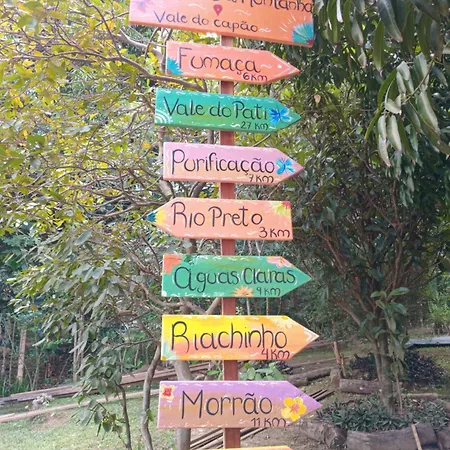 Montanha
Vale do capão
Fumaça
6 km
Vale do Pati
27 km
Purificação
7 km
Rio Preto
3 km
Águas Claras
9 km
Riachinho
4 km
Morrão
11 km